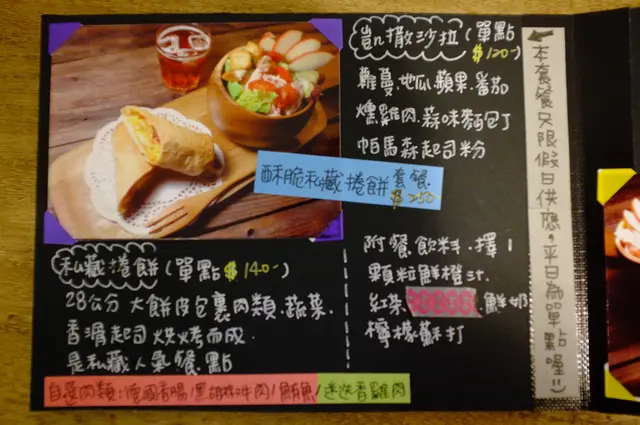 凱撒沙拉(單點
$120-)
蘿蔓.地瓜.蘋果.番茄
燻雞肉.蒜味麵包丁
帕馬森起司粉
酥脆私藏捲餅套餐
$250
私藏捲餅(單點$140-)
28公分大餅皮包裹肉類.蔬菜.
香滑起司烘烤而成
是私藏人氣餐點
自選肉類:德國香腸/黑胡椒牛肉/鮪魚/迷迭香雞肉
附餐飲料.擇1
顆粒鮮橙汁.
紅茶. 鮮奶
檸檬蘇打
本套餐只限假日供應,平日為單點喔:)